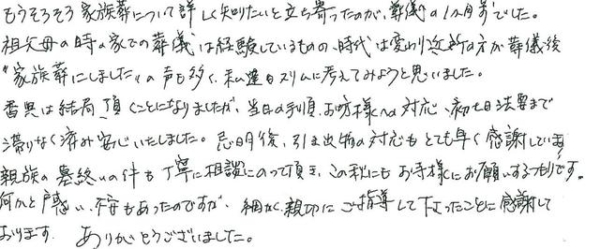 もうそろそろ家族葬について詳しく知りたいと立ち寄ったのが、葬儀の1ヶ月前でした。
祖父母の時の家での葬儀は経験しているものの、時代は変わり近所の方が葬儀後
"家族葬にしました"の声も多く、私達もスリムに考えてみようと思いました。
香典は結局、頂くことになりましたが、当日の手順、お坊様への対応、初七日法要まで
滞りなく済み安心いたしました。忌明後、引き出物の対応もとても早く感謝しています
親族の墓終いの件も丁寧に相談にのって頂き、この秋にもお寺様にお願いするつもりです。
何かと戸惑い、不安もあったのですが、細かく、親切にご指導して下さったことに感謝して
おります。ありがとうございました。